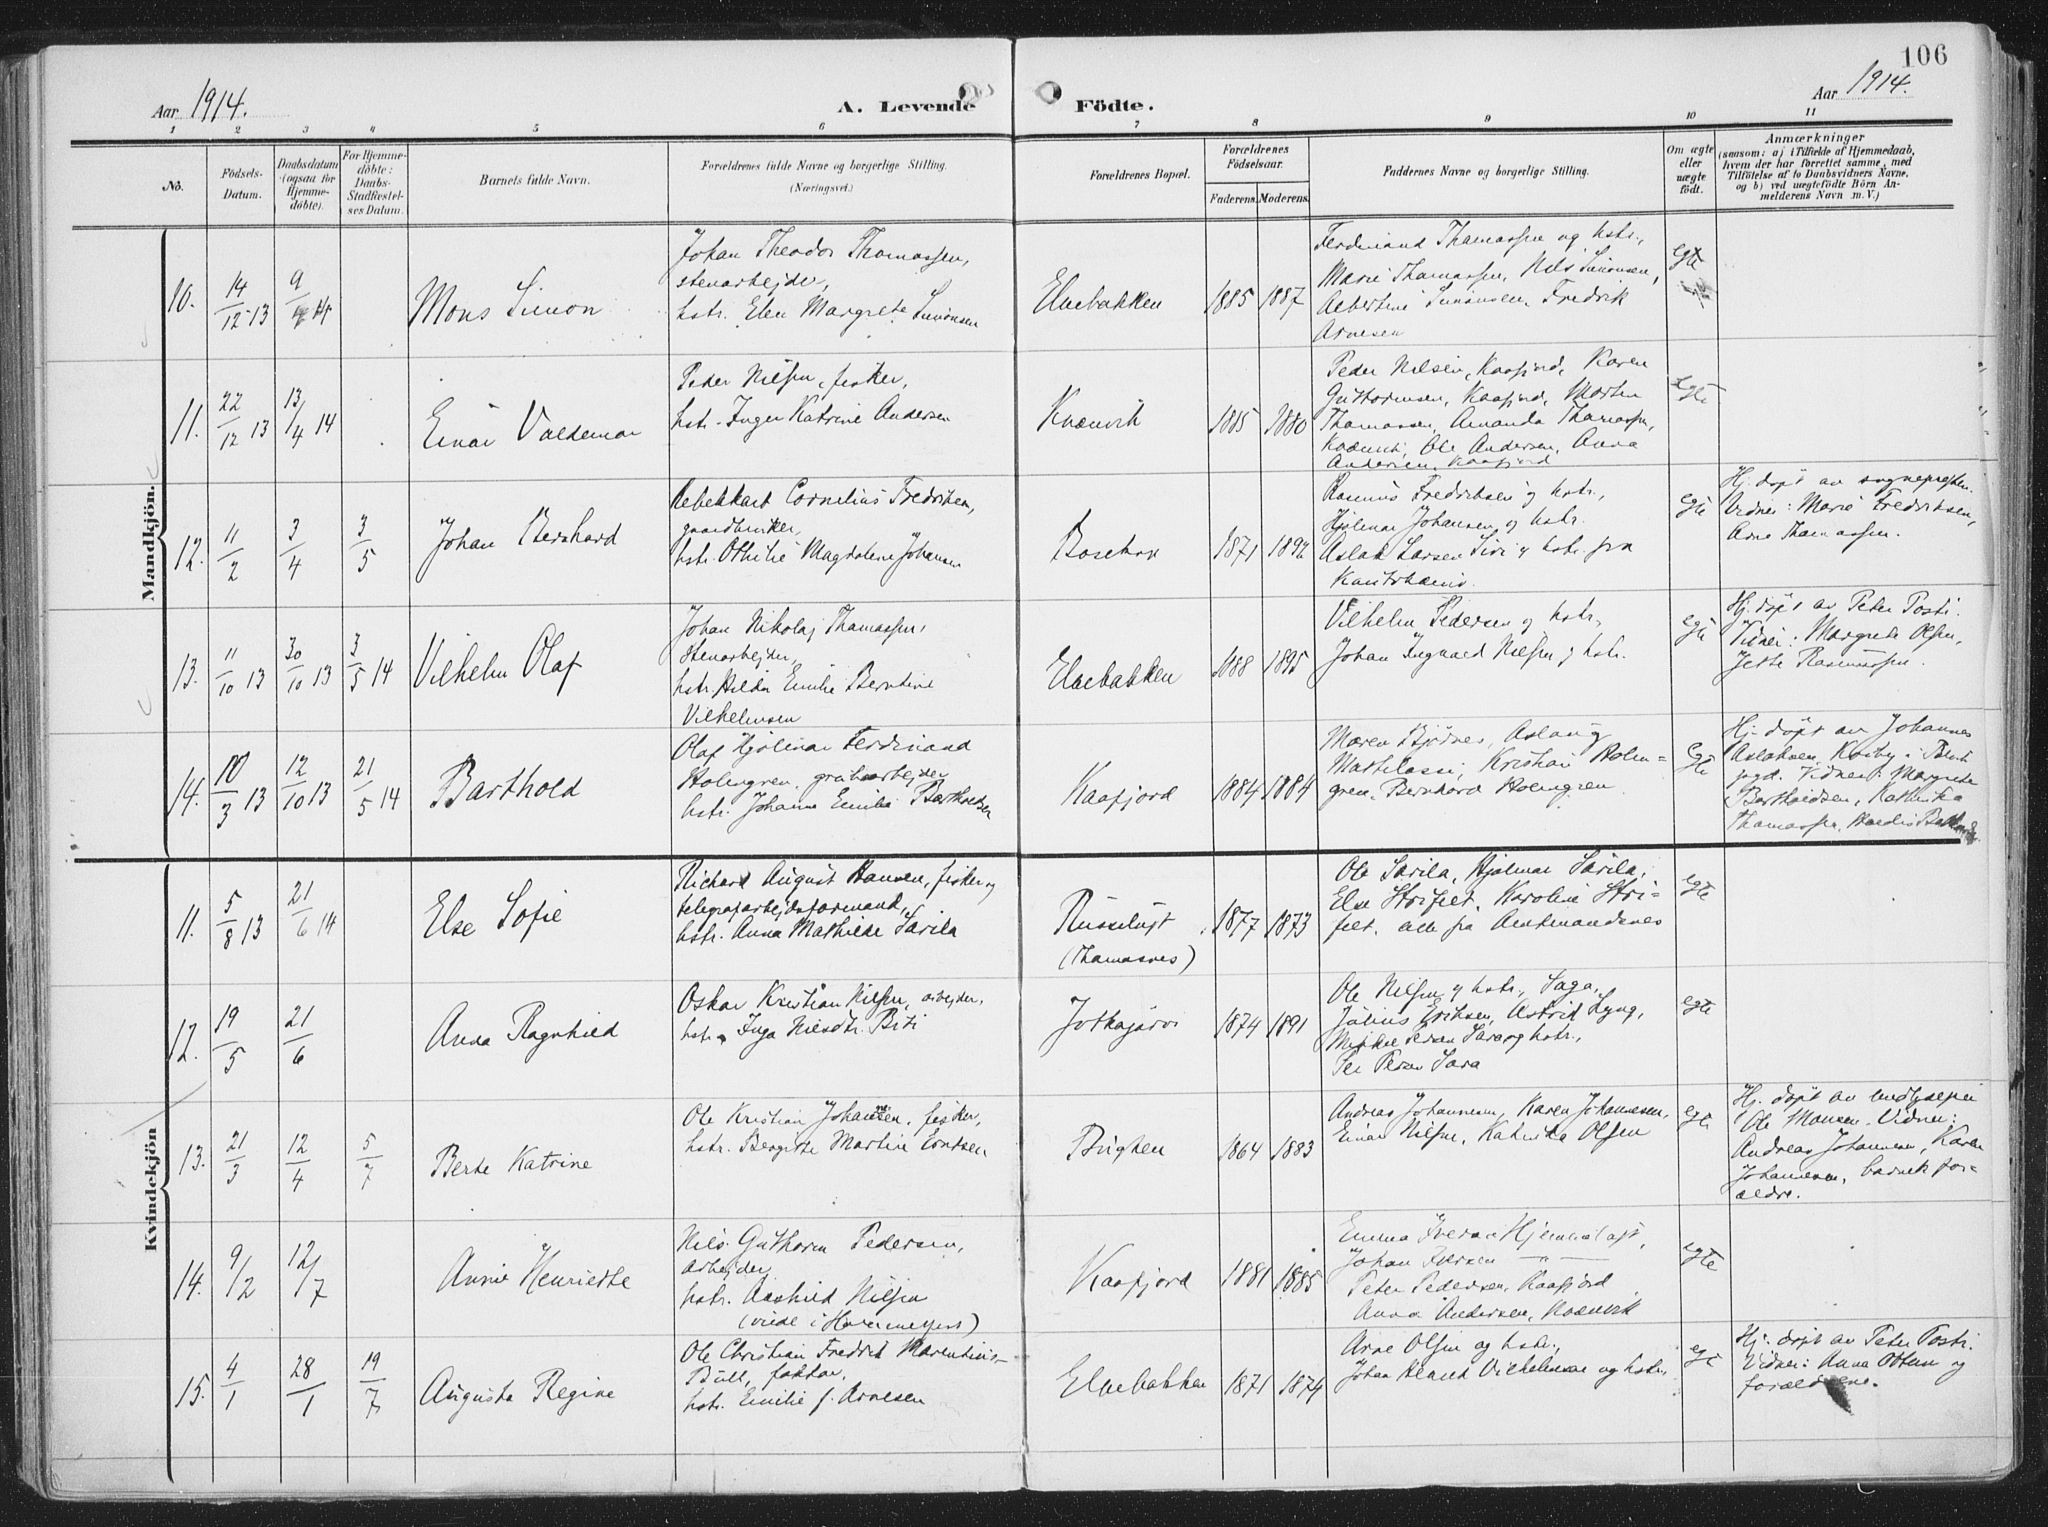 106
Aar 1914.
A. Levende Födte.
Aar 1914.
1 2 3 4 5 6 7 8 9 10 11
No.
Födsels-Datum.
Daabsdatum (ogsaa for Hjemme-döbte).
For Hjemme-döbte: Daabs-Stadfæstel-ses Datum.
Barnets fulde Navn.
Forældrenes fulde Navne og borgerlige Stilling.
(Næringsvei.)
Forældrenes Bopæl.
Forældrenes Födselsaar.
Faderens. Moderens.
Faddernes Navne og borgerlige Stilling.
Om ægte eller uægte födt.
Anmærkninger
(saasom: a) i Tilfælde af Hjemmedaab,
hvem der har forrettet samme, med
Tilföielse af to Daabsvidners Navne,
og b) ved uægtefödte Börn An-
melderens Navn m. V.)
Mandkjön.
10. 14/12-13 9/4 14 Mons Simon
Johan Theodor Thomassen,
stenarbejder,
hstr. Elen Margrete Simonsen
Elvebakken 1885 1887
Ferdinand Thomassen og hstr.,
Marie Thomassen, Nils Simonsen,
Albertine Simonsen, Fredrik
Arnesen
egte
11. 22/12 13 13/4 14 Einar Valdemar
Peder Nilsen, fisker,
hstr. Inger Katrine Andersen
Kvænvik 1885 1880
Peder Nilsen, Kaafjord, Karen
Guttormsen, Kaafjord, Morten
Thomassen, Amanda Thomassen,
Kvænvik, Ole Andersen, Anna
Andersen, Kaafjord
egte
12. 11/2 3/4 3/5 Johan Bernhard
Rebekkart Cornelius Fredriksen,
gaardbruker,
hstr. Othilie Magdalene Johansen
Bosekop 1871 1892
Rasmus Fredriksen og hstr.,
Hjalmar Johansen og hstr.
Aslak Larsen Siri og hstr. fra
Kautokeino.
egte
Hj. døpt av sognepresten.
Vidner: Marie Fredriksen,
Arne Thomassen.
13. 11/10 13 30/10 13 3/5 14 Vilhelm Olaf
Johan Nikolaj Thomassen,
Stenarbejder,
hstr. Hilda Emilie Berntine
Vilhelmsen
Elvebakken 1888 1895
Vilhelm Pedersen og hstr.,
Johan Ingvald Nilsen og hstr.
egte
Hj. døpt av Peter Posti.
Vidner: Margrete Olsen,
Jette Rasmussen.
14. 10/3 13 12/10 13 21/5 14 Barthold
Olaf Hjalmar Ferdinand
Holmgren, grubearbejder
hstr. Johanne Emilie Bartholdsen
Kaafjord 1884 1884
Maren Bjørnes, Aslaug
Mathilassi, Kristian Holm-
gren, Bernhard Holmgren.
egte
Hj. døpt av Johannes
Aslaksen
Vidner: Margrete
Bartholdsen, Kathrika
Thomassen,
Kvindekjön
11. 5/8 13 21/6 14 Else Sofie
Richard August Hansen, fisker og
telegrafarbejdsformand,
hstr. Anna Mathilde Sarila
Russeluft
(Thomasnes)
1877 1873
Ole Sarila, Hjalmar Sarila,
Else Strifelt, Karoline Stri-
felt, alle fra Amtmandsnes
egte
12. 19/5 21/6 Anna Ragnhild
Oskar Kristian Nilsen, arbejder,
hstr. Inga Nilsdtr. Biti
Jotkajavri 1874 1891
Ole Nilsen og hstr., Saga,
Julius Eriksen, Astrid Lyng,
Mikkel Persen Sara og hstr.,
Per Persen Sara
egte
13. 21/3 12/4 5/7 Berte Katrine
Ole Kristian Johansen, fisker,
hstr. Bergitte Martine Evertsen
Bugten 1864 1883
Andreas Johannesen, Karen Johannesen,
Einar Nilsen, Katrika Olsen
egte
Hj. døpt av
Ole Monsen. Vidner:
Andreas Johannesen, Karen
Johannesen, barnets for-
ældre.
14. 9/2 12/7 Annie Henriette
Nils Guthorm Pedersen,
arbejder,
hstr. Aashild Nilsen
(viede i Hammerfest)
Kaafjord 1881 1885
Emma Iversen Hjemmeluft,
Johan Iversen — " —
Peter Pedersen, Kaafjord
Anna Andersen, Kvænvik
egte
15. 4/1 28/1 19/7 Augusta Regine
Ole Christian Fredrik Marentius
Bull, faktor,
hstr. Emilie f. Arnesen
Elvebakken 1871 1874
Arne Olsen og hstr.,
Johan Eland Vilhelmsen og hstr.
egte
Hj. døpt av Peter Posti.
Vidner: Anna Ottem og
forældrene.